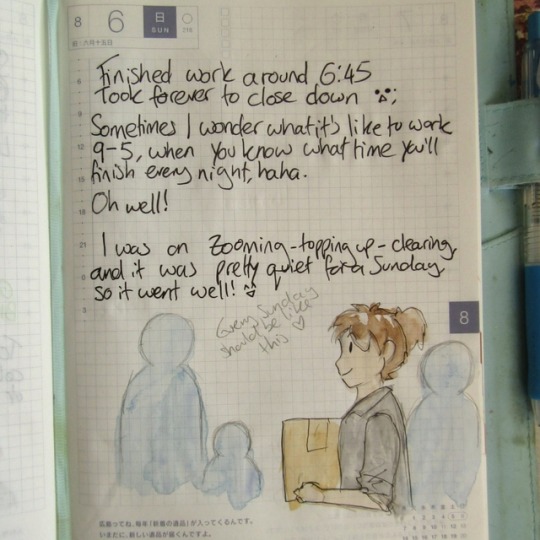 8 6 日 SUN
218
旧:六月十五日
Finished work around 6:45
Took forever to close down
Sometimes I wonder what it's like to work
9-5, when you know what time you'll
finish every night, haha.
Oh well!
I was on Zooming-topping up-clearing,
and it was pretty quiet for a Sunday
so it went well!
Every Sunday
should be like
this ♡
8
広島ってね、毎年「新着の遺品」が入ってくるんです。
いまだに、新しい遺品が届くんですよ。